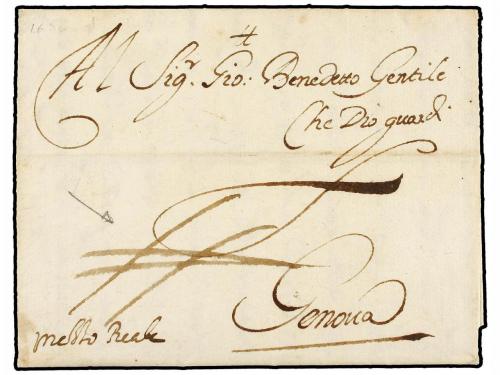 Al Sigr. Gio: Benedetto Gentile
Che Dio guardi
Genoua
messo Reale